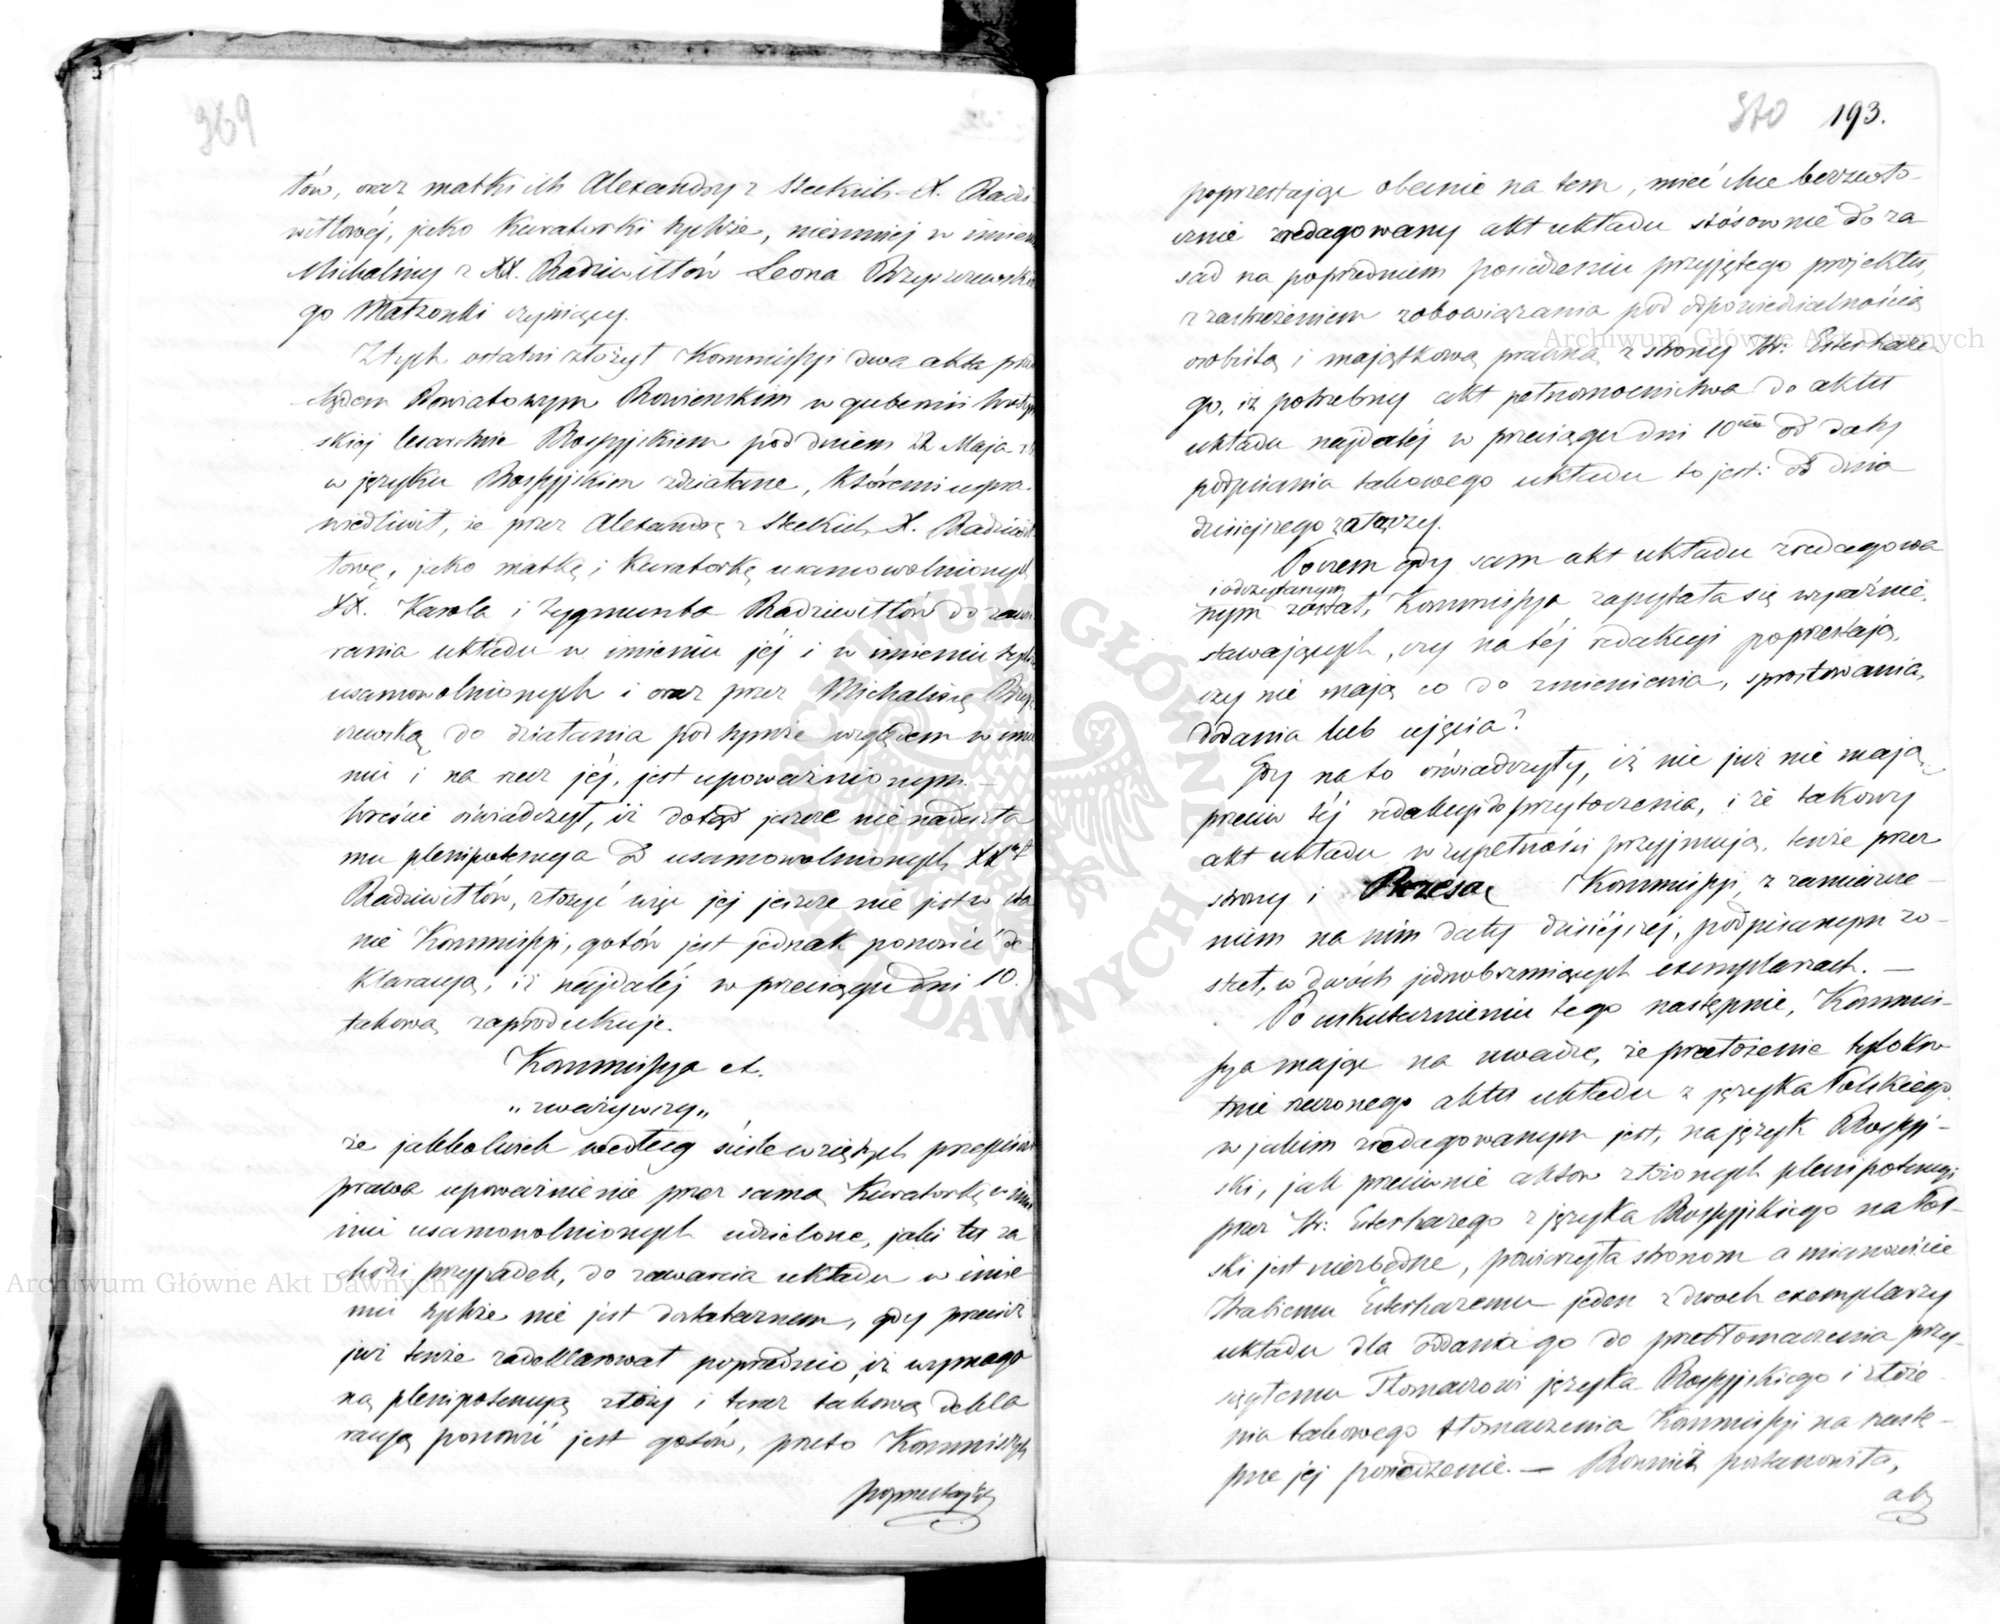 369
tów, oraz matki ich Alexandry z Steckich X. Radzi
wiłłowéj, jako Kuratorki tychże, niemniéj w imieniu
Michaliny z XX. Radziwiłłów Leona Brzyszczewskie
go Małżonki czyniący.
Z tych ostatni złożył Kommissyi dwa akta przed
Sądem Powiatowym Rowieńskim w gubernii Wołyń
skiéj Cesarstwie Rossyjskiem pod dniem 22 Maja
w języku Rossyjskim zdziałane, któremi uspra-
wiedliwił, że przez Alexandrę z Steckich X. Radziwił
łową, jako matkę i Kuratorkę usamowolnionych
XX. Karola i Zygmunta Radziwiłłów do zawie
rania układu w imieniu jéj i w imieniu tychże
usamowolnionych i oraz przez Michalinę Brzysz
czewską do działania pod tymże względem w imie
niu i na rzecz jéj, jest upoważnionym. —
Wreście oświadczył, iż dotąd jeszcze nie nadeszła
mu plenipotencya od usamowolnionych XX
Radziwiłłów, złożyć więc jej jeszcze nie jest w sta
nie Kommissyi, gotów jest jednak ponowić de
klaracyą, iż najdaléj w przeciągu dni 10.
takową zaprodukuje.
Kommissya et.
„zważywszy„
że jakkolwiek według ściśle wziętych przepisów
prawa upoważnienie przez samą Kuratorkę w imie
niu usamowolnionych udzielone, jaki tu za
chodzi przypadek, do zawarcia układu w imie
niu tychże nie jest dostatecznem, gdy przecież
już tenże zadeklarował poprzednio, iż wymaga
ną plenipotencyą złoży i teraz takową dekla
racyą ponowić jest gotów, przeto Kommissya
poprzestając
370 193.
poprzestając obecnie na tem, mieć chce bezzwło-
cznie zredagowany akt układu stósownie do za
sad na poprzedniem posiedzeniu przyjętego projektu,
z zastrzeżeniem zobowiązania pod odpowiedzialnością
osobistą i majątkową prawną z strony Hr: Esterhaze
go, iż potrzebny akt pełnomocnictwa do aktu
układu najdaléj w przeciągu dni 10ciu od daty
podpisania takowego układu to jest: od dnia
dzisiejszego załączy.
Poczem gdy sam akt układu zredagowa
i odczytanym
nym został, Kommissya zapytała się wyraźnie
stawających, czy na téj redakcyi poprzestają,
czy nie mają co do zmienienia, sprostowania,
dodania lub ujęcia?
Gdy na to oświadczyły, iż nic już nie mają
przeciw téj redakcyi do przytoczenia, i że takowy
akt układu w zupełności przyjmują, tenże przez
strony i Prezesa Kommissyi z zamieszcze-
niem na nim daty dzisiéjszéj, podpisanym zo-
stał, w dwóch jednobrzmiących exemplarzach. —
Po uskutecznieniu tego następnie, Kommis-
sya mając na uwadze, że przełożenie tylokro
tnie rzeczonego aktu układu z języka Polskiego
w jakim zredagowanym jest, na język Rossyj-
ski, jak przeciwnie aktów złożonych plenipotencyi
przez Hr: Esterhazego z języka Rossyjskiego na Pol-
ski jest niezbędne, powierzyła stronom a mianowicie
Hrabiemu Esterhazemu jeden z dwóch exemplarzy
układu dla oddania go do przetłomaczenia przy-
sięgłemu Tłomaczowi języka Rossyjskiego i złoże-
nia takowego tłomaczenia Kommissyi na nastę-
pne jej posiedzenie. — Również postanowiła,
aby
Archiwum Główne Akt Dawnych
Archiwum Główne Akt Dawnych
ARCHIWUM GŁÓWNE AKT DAWNYCH